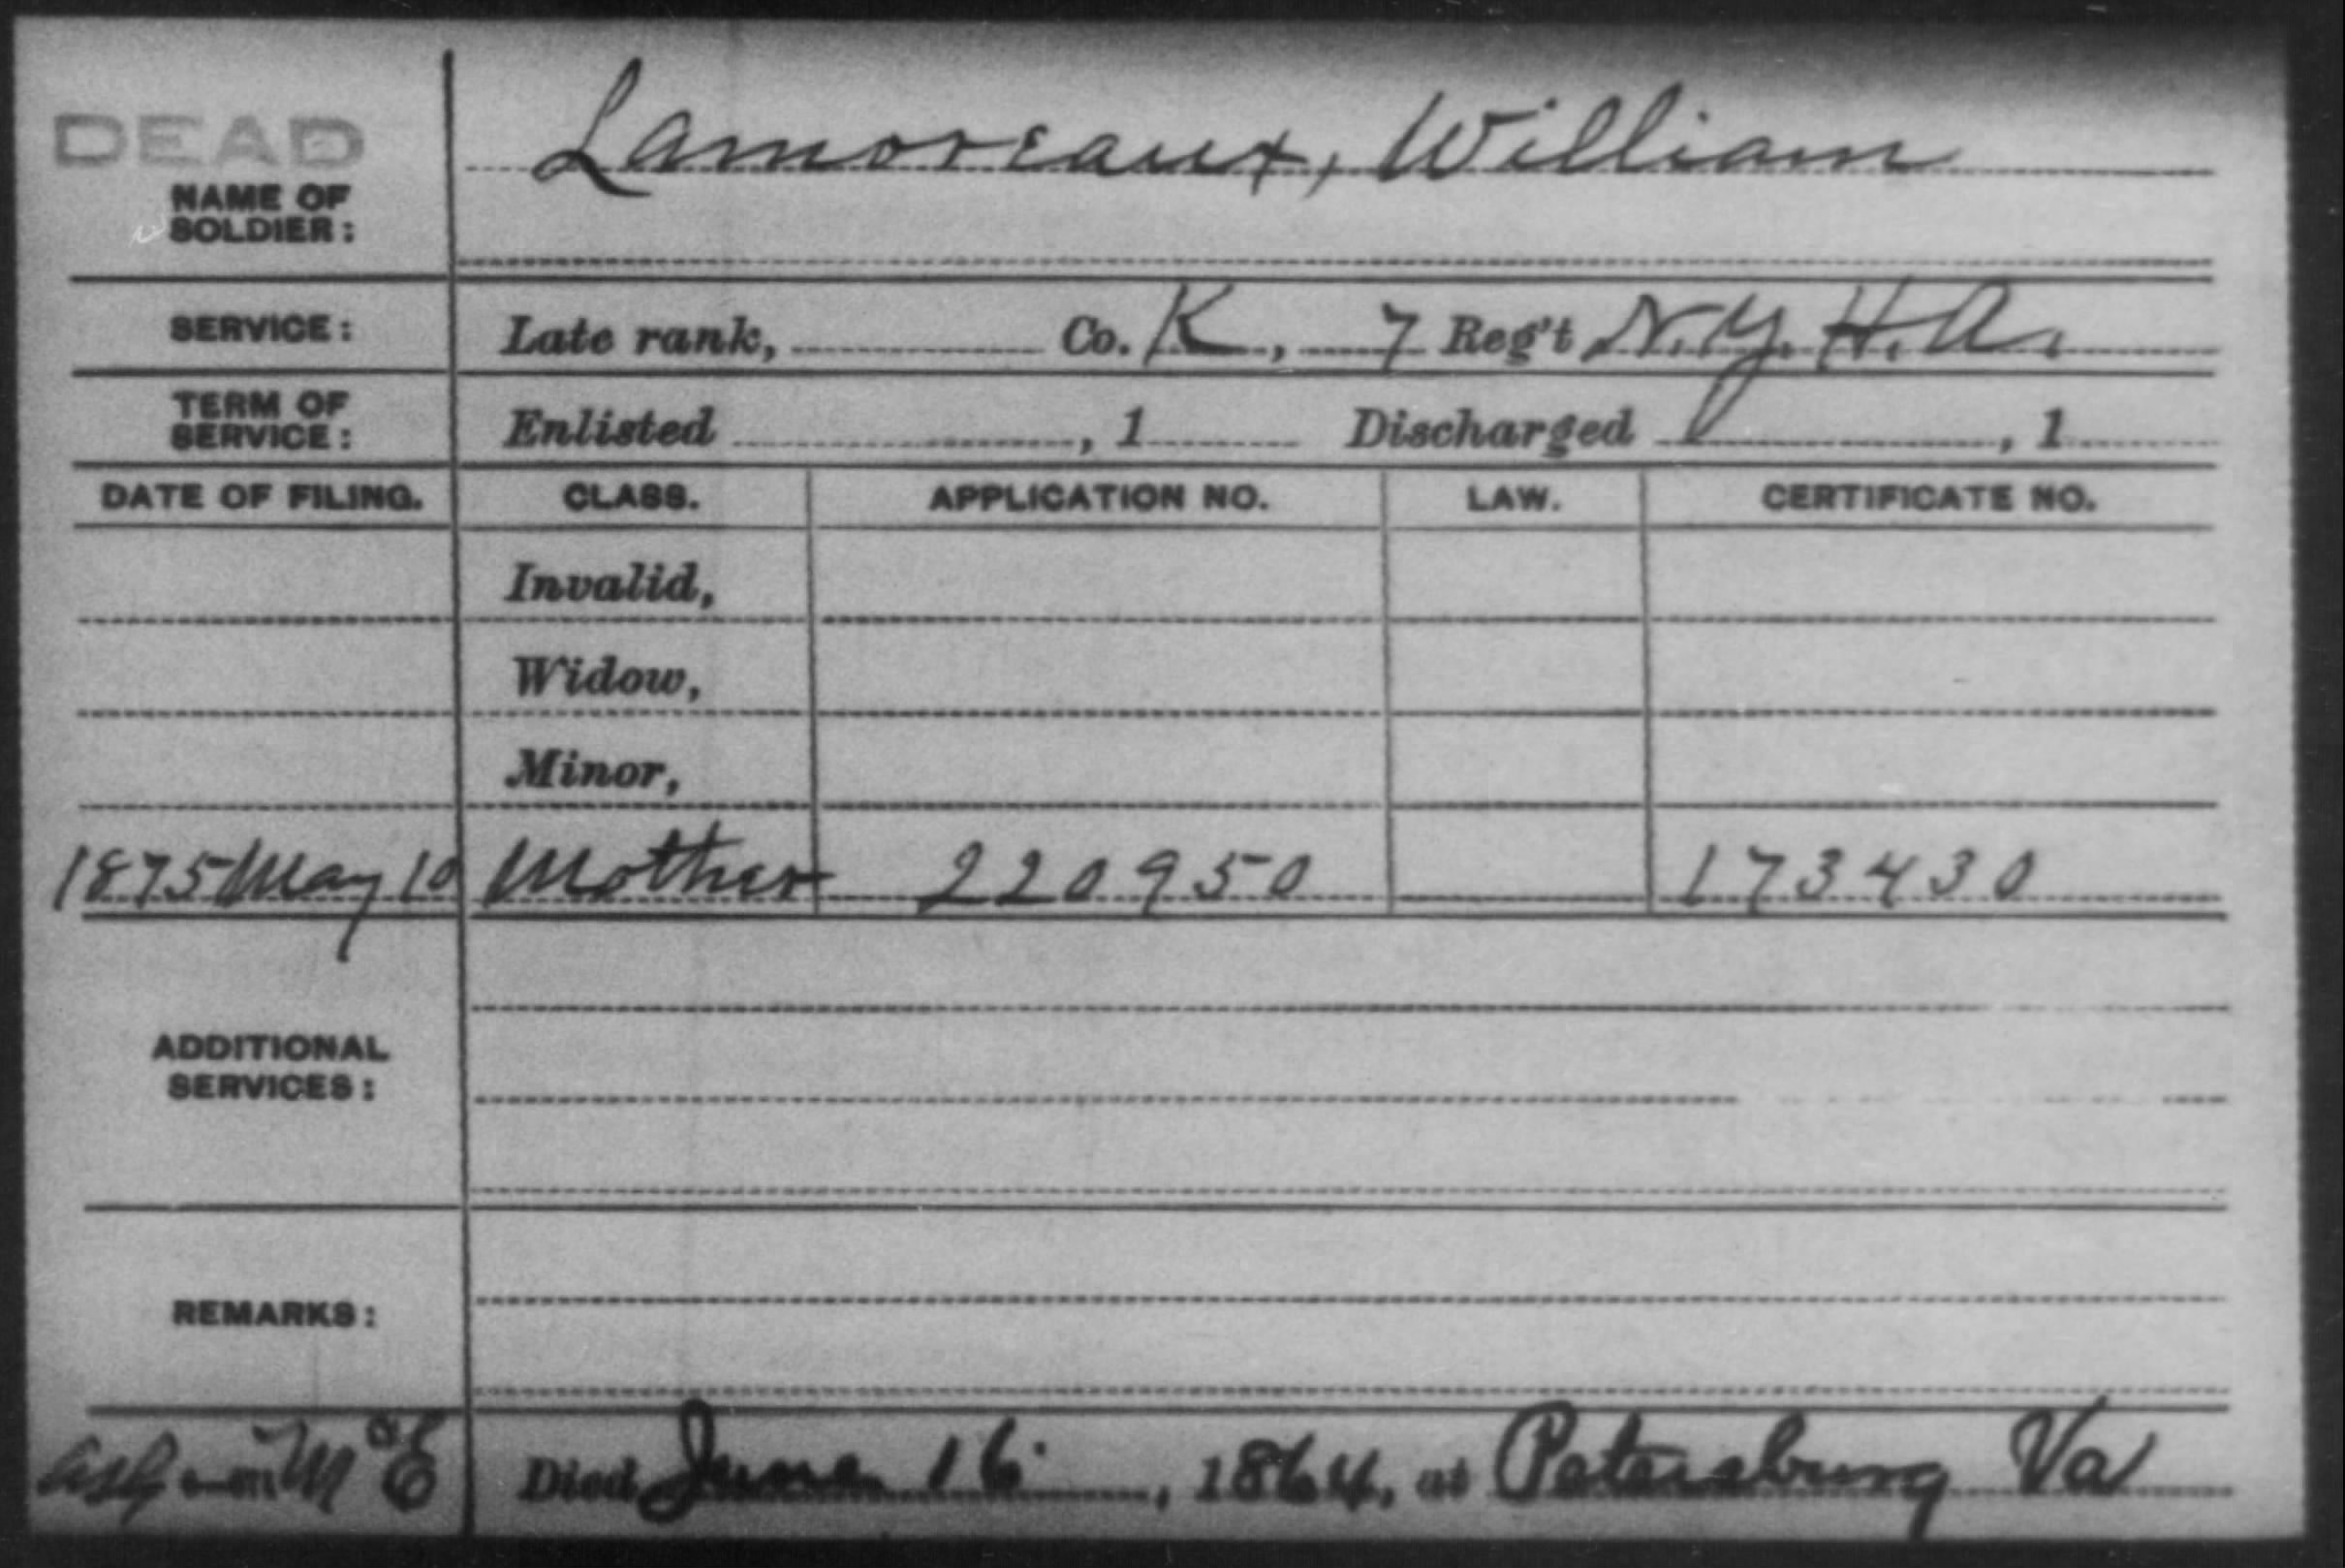 DEAD
NAME OF
SOLDIER:
Lamoreaux, William
SERVICE: Late rank, Co. K, 7 Reg't N.Y. H.A.
TERM OF
SERVICE: Enlisted , 1 Discharged , 1
DATE OF FILING. CLASS. APPLICATION NO. LAW. CERTIFICATE NO.
Invalid,
Widow,
Minor,
1875 May 10 Mother 220950 173430
ADDITIONAL
SERVICES:
REMARKS:
Died June 16, 1864, at Petersburg Va